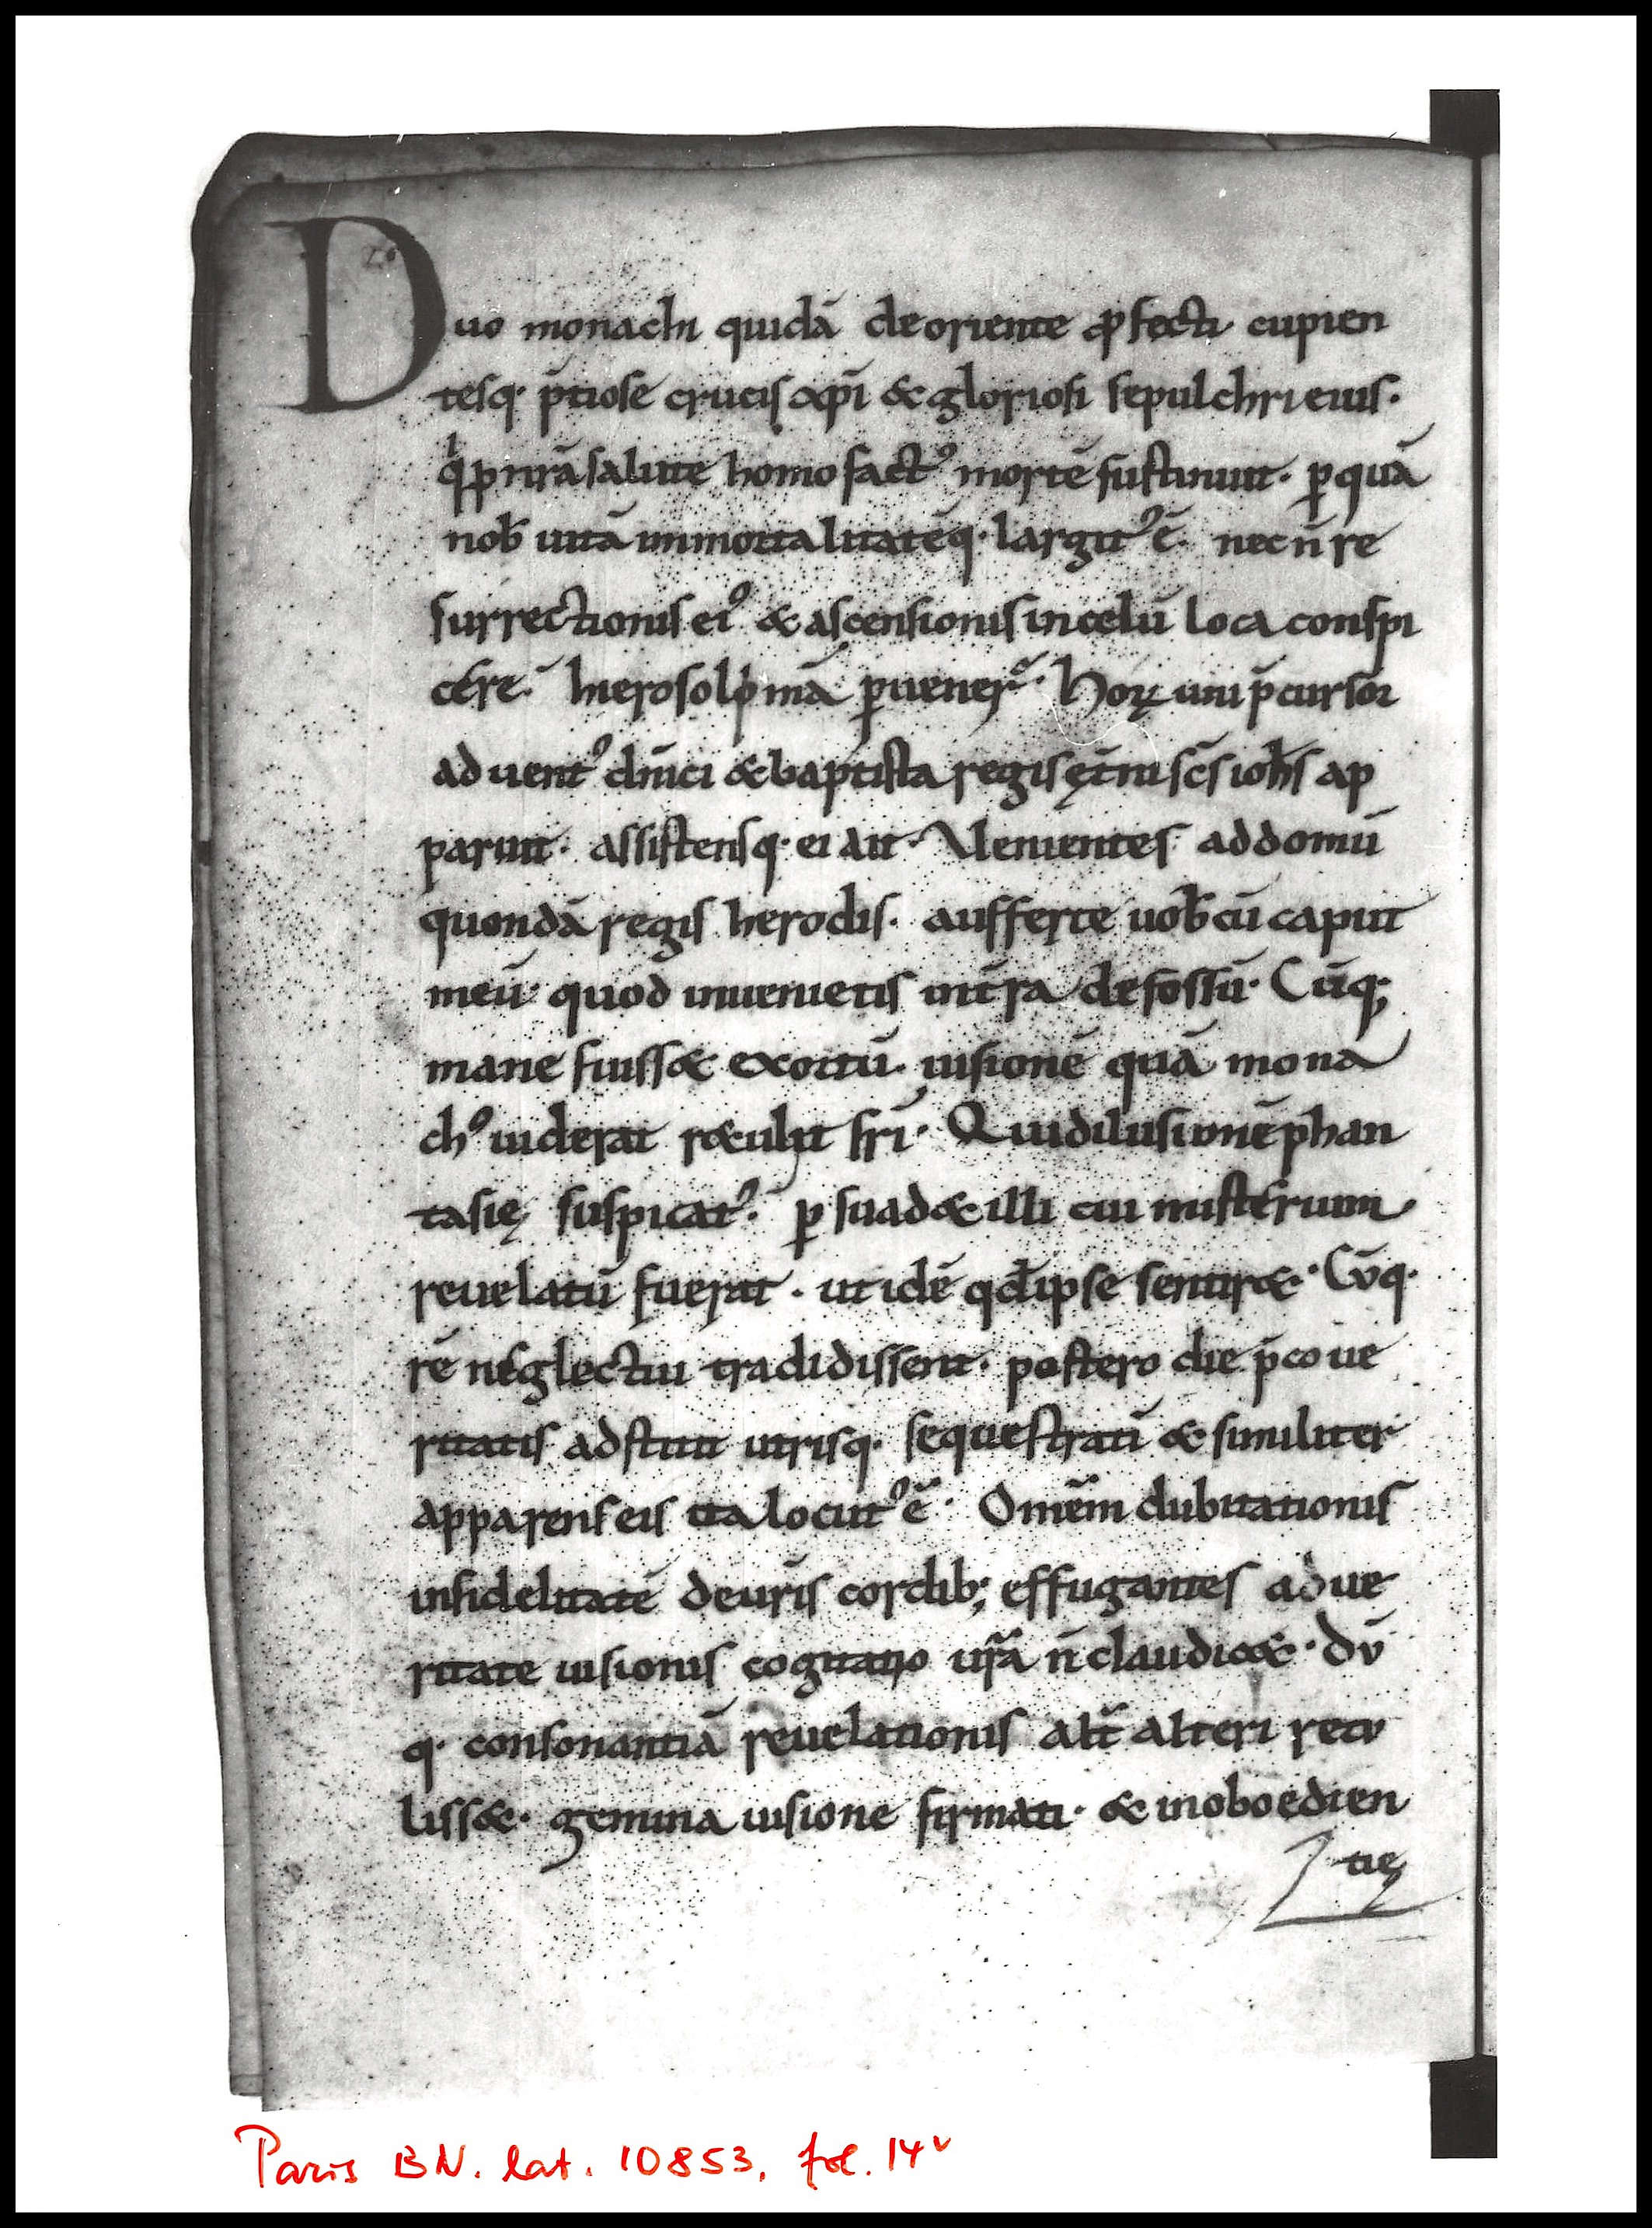 Duo monachi quidā de oriente ꝓfecti cupien
tesq· p̄tiose crucis xp̄i & gloriosi sepulchri eius·
qͥ ꝓ nr̄ā salute homo fact᾽ mortē sustinuit· ꝑ quā
nob̄ uitā immortalitatēq· largit᾽ ē· nec n̄ re
surrectionis ei᾽ & ascensionis in celū loca conspi
cere· hierosolimā ꝑuener̄· Horꝝ uni p̄cursor
aduent᾽ dn̄ici & baptista regis ęt̄ni sc̄s ioh̄s ap
paruit· assistensq· ei ait· Uenientes ad domū
quondā regis herodis· aufferte uob̄cū caput
meū quod inuenietis int̄ra defossū· Cūq·
mane fuiss& exortū· uisionē quā mona
ch᾽ uiderat r&ulit fr̄i· Qui dilusionē phan
tasię suspicat᾽· ꝑsuad& illi cui misterium
reuelatū fuerat· ut idē qd̄ ipse sentir&· Cūq·
rē neglectui tradidissent· postero die p̄co ue
ritatis adstitit utrisq· sequestrati & similiter
apparens eis ita locut᾽ ē· Omēm dubitationis
infidelitatē de ur̄is cordib; effugantes a ue
ritate uisionis cogitatio ur̄a n̄ claudic&· Dū
q· consonantiā reuelationis alt̄ alteri retu
liss&· gemina uisione firmati· & inoboedien
tię
Paris BN. lat. 10853, fol. 14v